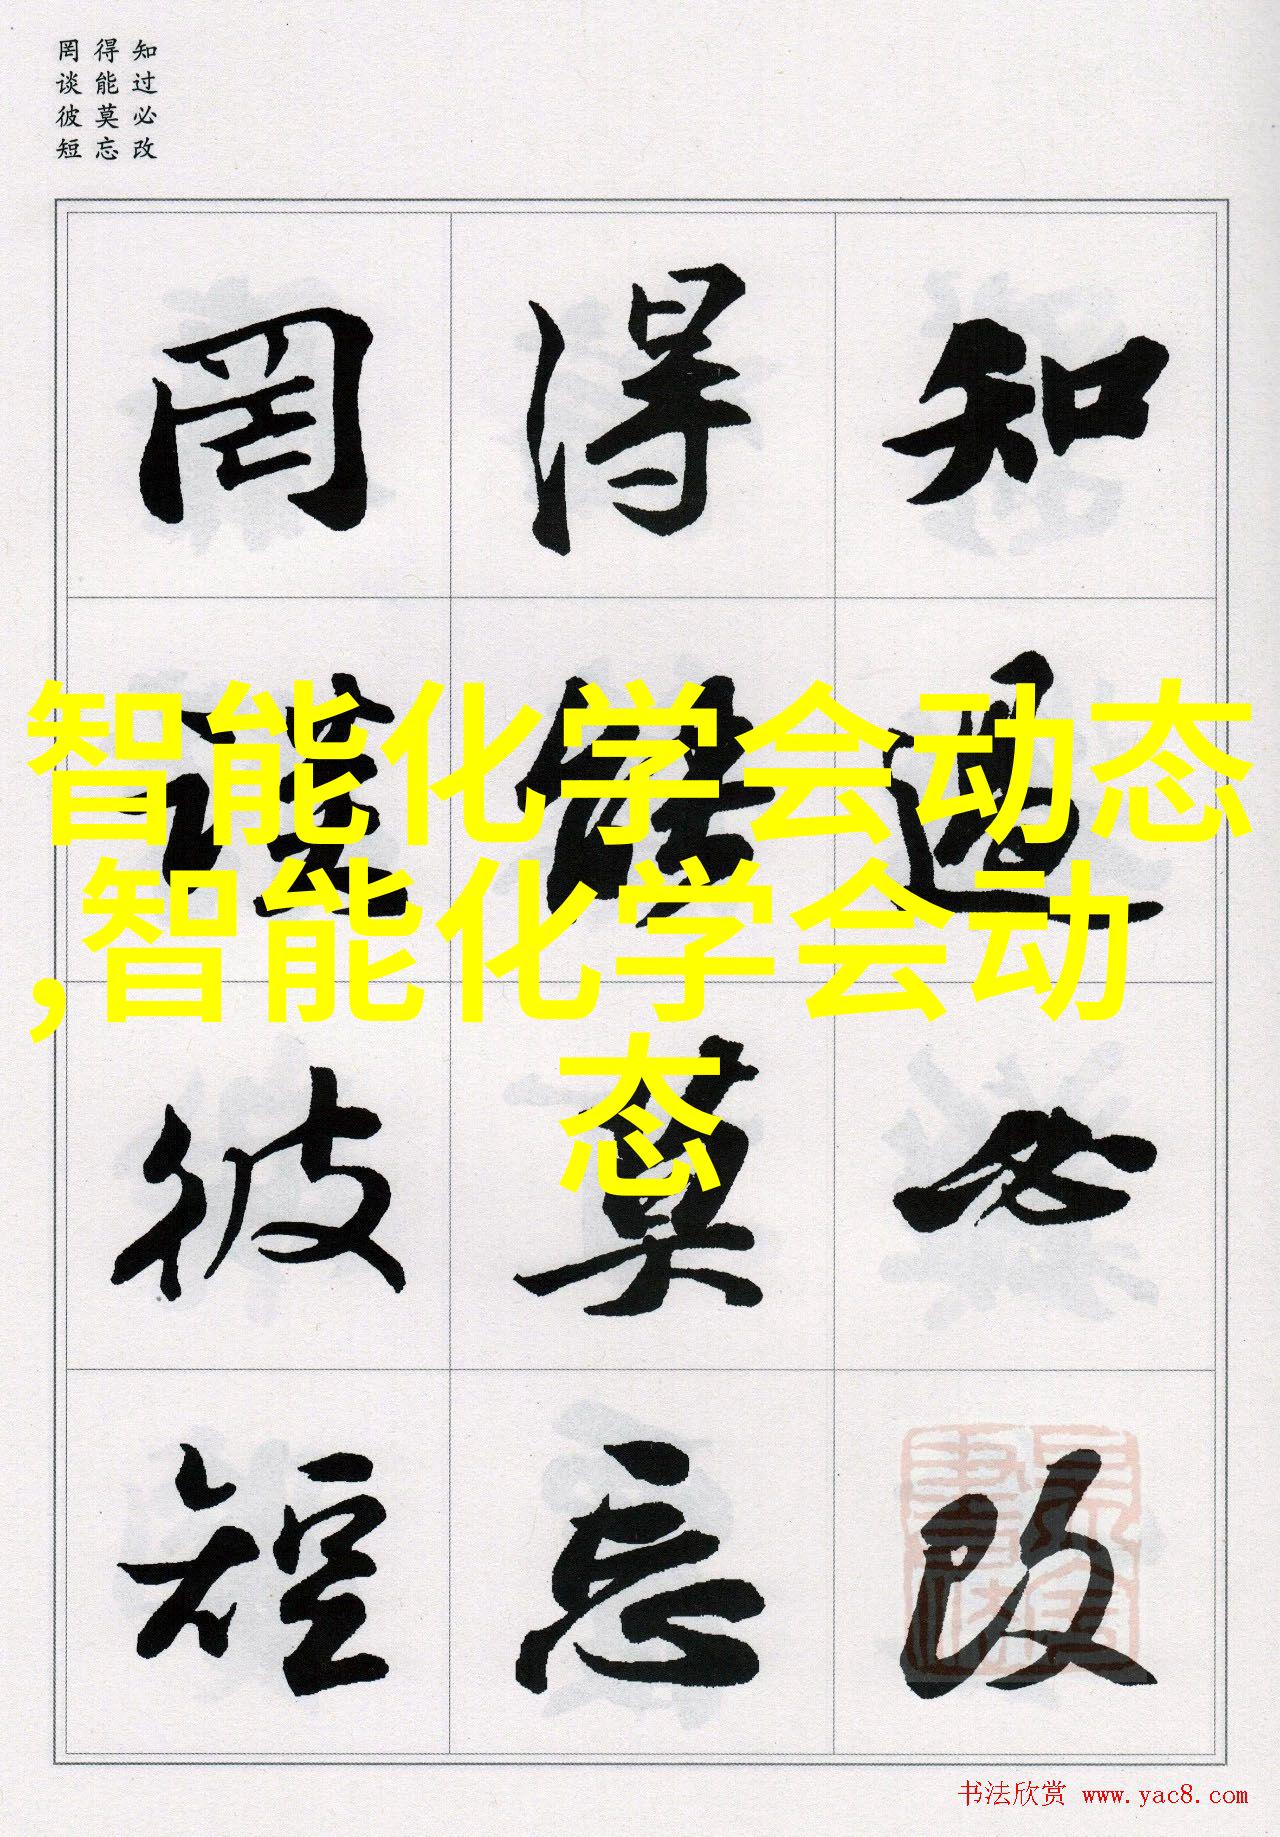 知过必改
得能莫忘
罔谈彼短
知過必改
得能莫忘
罔談彼短
智能化学会动态
,智能化学会动
态
书法欣赏 www.yac8.com